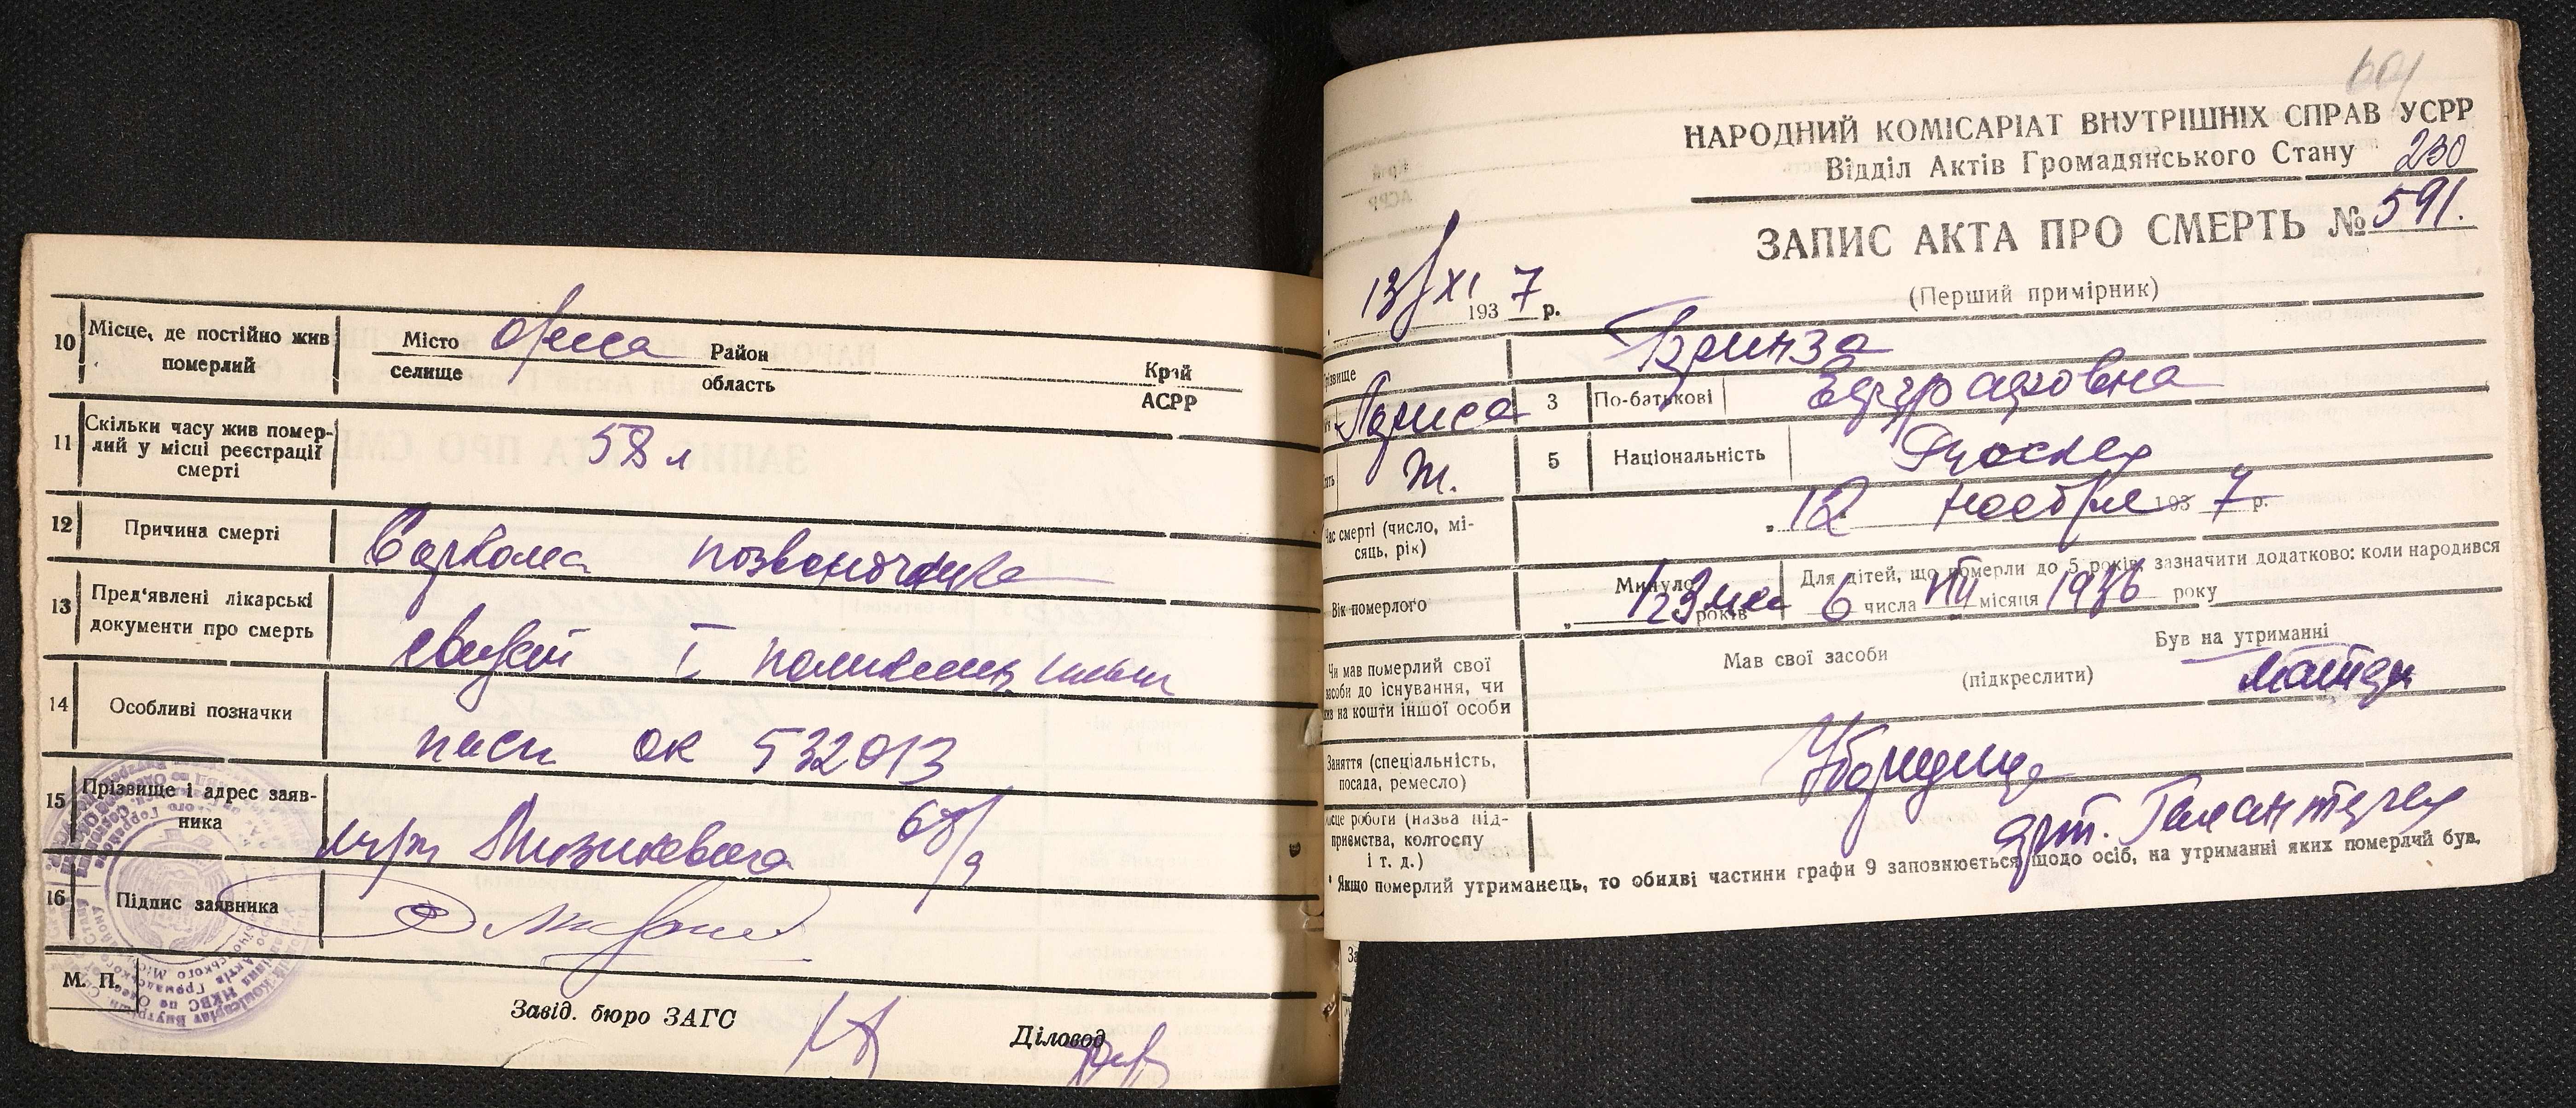 10 Місце, де постійно жив померлий
Місто селище Одесса Район область Край АСРР
11 Скільки часу жив помер-
лий у місці реєстрації
смерті
58 л
12 Причина смерті
Саркома позвоночника
13 Пред'явлені лікарські
документи про смерть
I
14 Особливі позначки
пасп ОК 532013
15 Прізвище і адрес заяв-
ника
68/9
16 Підпис заявника
М. П.
Завід. бюро ЗАГС
Діловод
601
НАРОДНИЙ КОМІСАРІАТ ВНУТРІШНІХ СПРАВ УСРР
Відділ Актів Громадянського Стану 230
ЗАПИС АКТА ПРО СМЕРТЬ № 591.
(Перший примірник)
13/XI 1937 р.
різвище Бринза
Лариса 3 По-батькові
Ж. 5 Національність
Час смерті (число, мі-
сяць, рік)
„ 12 ноября 1937 р.
Вік померлого
Минуло
років
Для дітей, що померли до 5 років, зазначити додатково: коли народився
6 числа VIII місяця 1936 року
Чи мав померлий свої
засоби до існування, чи
жив на кошти іншої особи
Мав свої засоби
(підкреслити)
Був на утриманні
матери
Заняття (спеціальність,
посада, ремесло)
Уборщица
Місце роботи (назва під-
приємства, колгоспу
і т. д.)
арт. Галантерея
* Якщо померлий утриманець, то обидві частини графи 9 заповнюється щодо осіб, на утриманні яких померлий був.